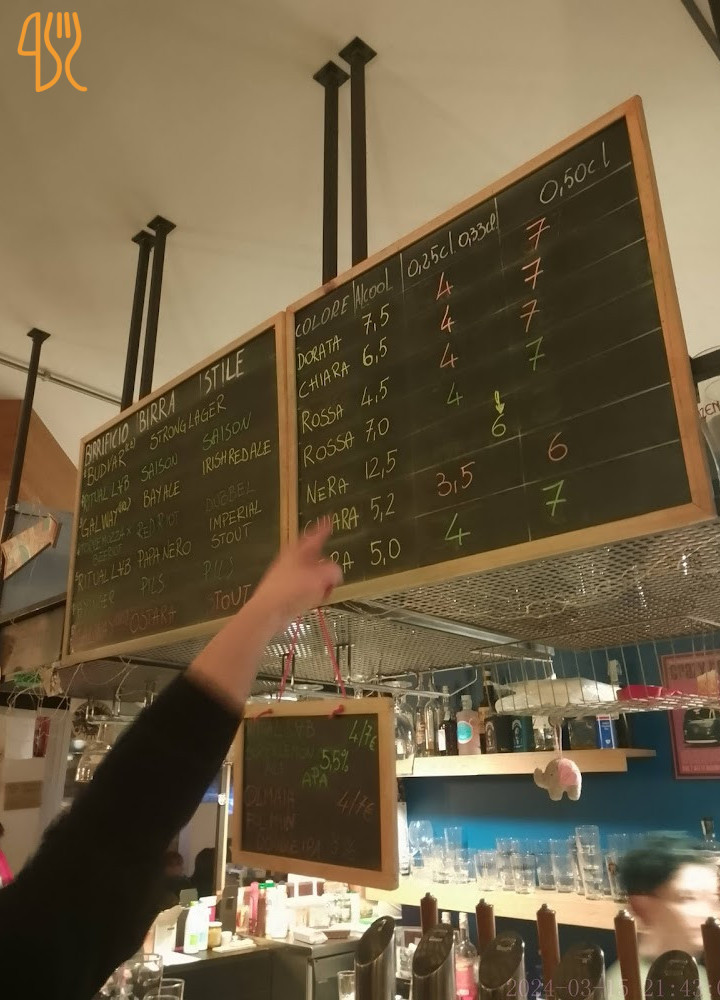 BIRRIFICIO BIRRA STILE
BUDVAR STRONG LAGER
RITUAL LAB SAISON SAISON
GALWAY BAY ALE IRISH RED ALE
RED RIOT DUBBEL
RITUAL LAB PAPA NERO IMPERIAL STOUT
PILS PILS
OSTARA STOUT
COLORE ALCOOL 0,25cl 0,33cl 0,50cl
DORATA 7,5 4 7
CHIARA 6,5 4 7
ROSSA 4,5 4 7
ROSSA 7,0 4 7
NERA 12,5 6
CHIARA 5,2 3,5 6
5,0 4 7
4/7€
5,5%
APA
4/7€
2024-03-15 21:43